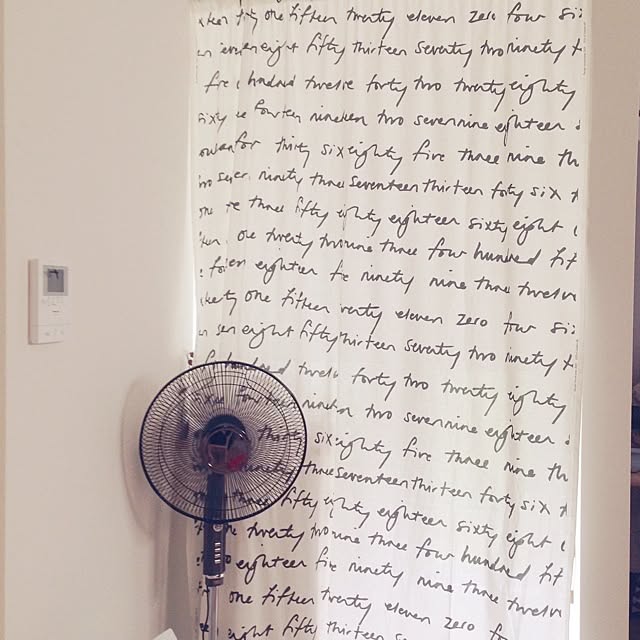 one fifteen twenty eleven zero four
eight fifty thirteen seventy two ninety
hundred twelve forty two twenty eighty
sixty fourteen nineteen two seven nine eighteen
for thirty six eighty five three nine th
ninety three seventeen thirteen forty six
one three fifty eighty eighteen sixty eight
one twenty two nine three four hundred fif
eighteen five ninety nine three twelve
one fifteen eleven zero four
eight fifty thirteen seventy two ninety
twelve forty two twenty eighty
nineteen two seven nine eighteen
thirty six eighty five three nine th
ninety three seventeen thirteen forty six
three fifty eighty eighteen sixty eight
twenty two nine three four hundred fif
eighteen five ninety nine three twelve
one fifteen twenty eleven zero four
eight fifty thirteen seventy two ninety